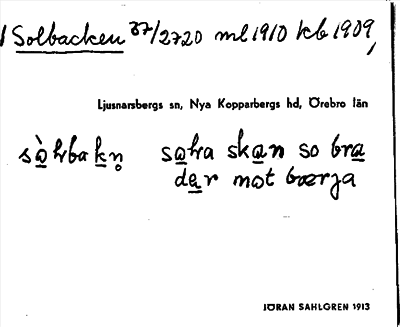 Solbacken 37/2720 ml 1910 kb 1909,
Ljusnarsbergs sn, Nya Kopparbergs hd, Örebro län
sola skan so bra
dær mot bærja
JÖRAN SAHLGREN 1913